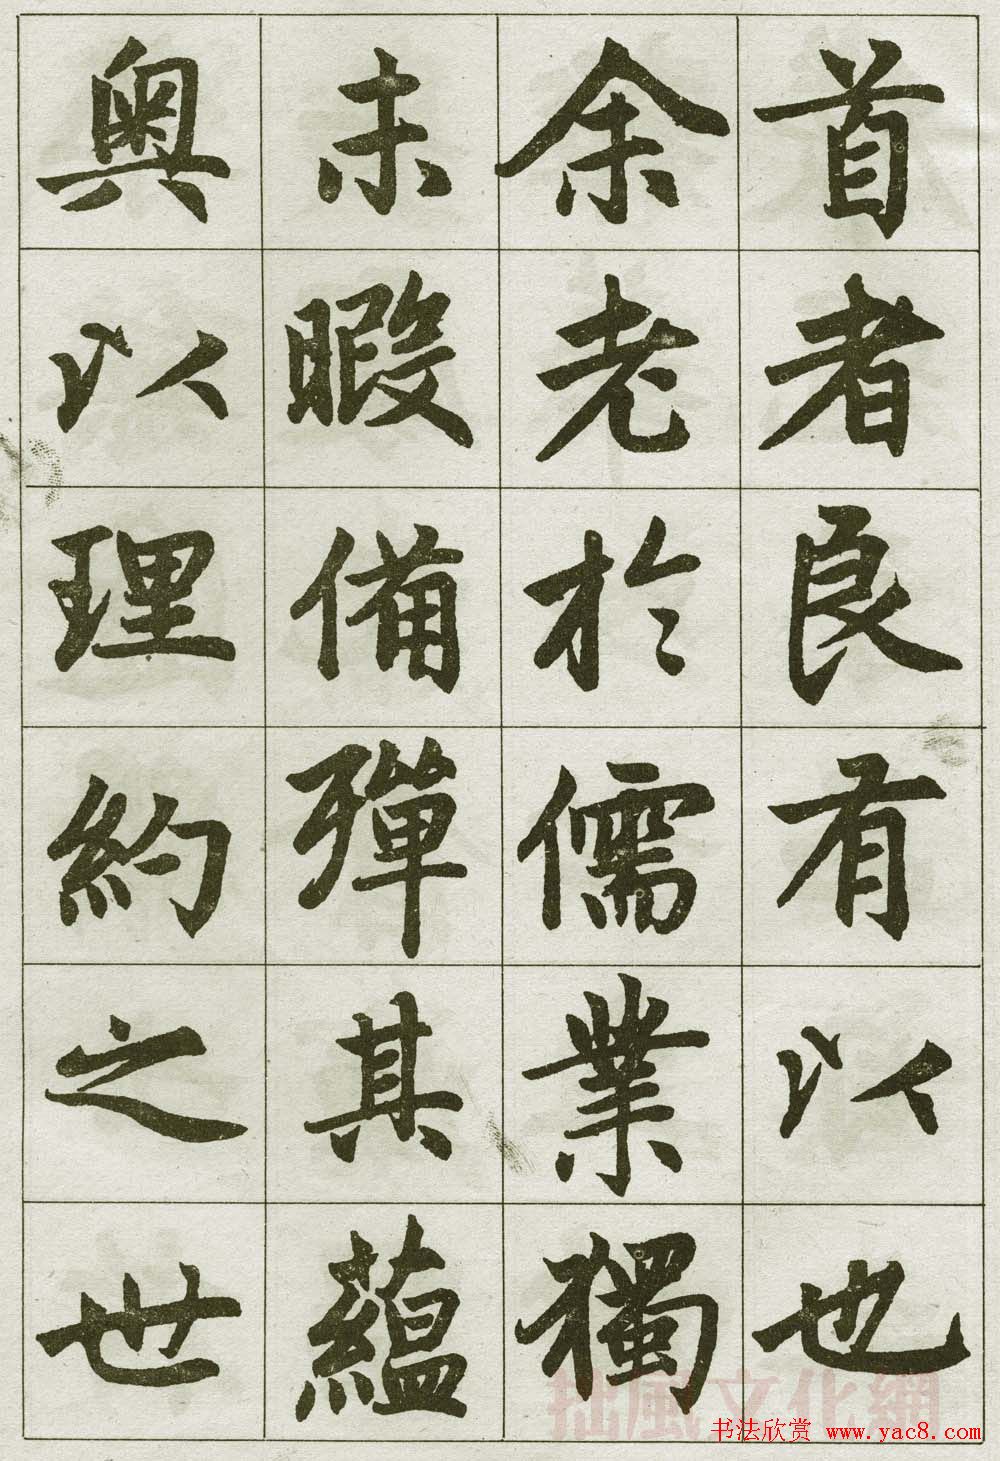 首者良有以也
余老於儒業獨
未暇備殫其蘊
奥以理約之世
拙風文化網
书法欣赏 www.yac8.com